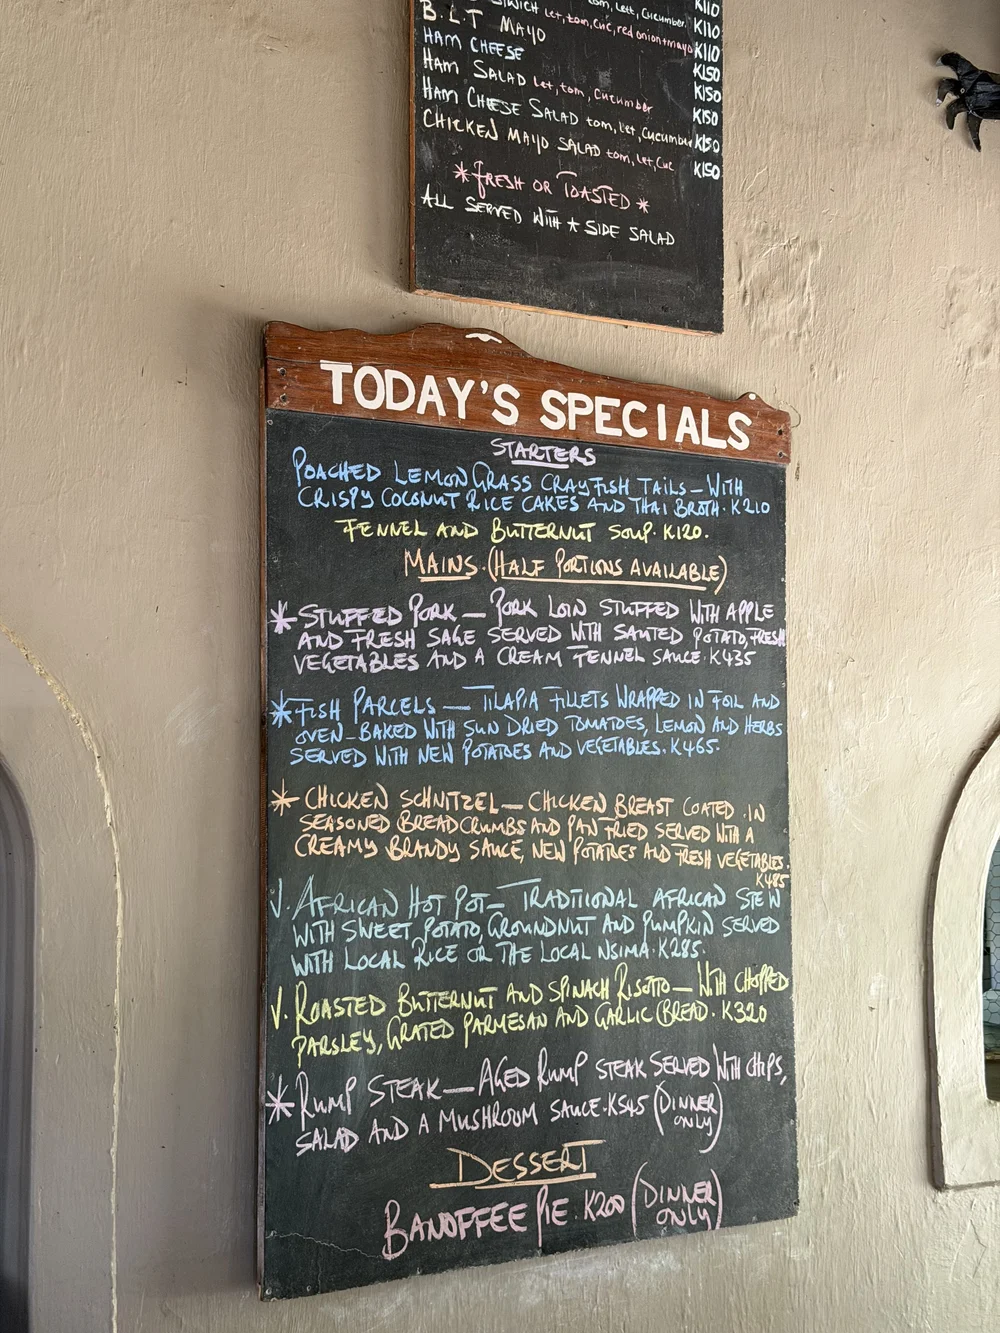 tom, Lett, Cucumber. K110
let, tom, cuc, red onion + mayo K110
B.L.T MAYO K110
HAM CHEESE K150
HAM SALAD let, tom, Cucumber K150
HAM CHEESE SALAD tom, let, Cucumber K150
CHICKEN MAYO SALAD tom, Let, Cuc K150
K150
*FRESH OR TOASTED*
ALL SERVED WITH * SIDE SALAD
TODAY'S SPECIALS
STARTERS
POACHED LEMON GRASS CRAYFISH TAILS – WITH
CRISPY COCONUT RICE CAKES AND THAI BROTH. K210
FENNEL AND BUTTERNUT SOUP. K120.
MAINS. (HALF PORTIONS AVAILABLE)
* STUFFED PORK – PORK LOIN STUFFED WITH APPLE
AND FRESH SAGE SERVED WITH SAUTED POTATO, FRESH
VEGETABLES AND A CREAM FENNEL SAUCE. K435
* FISH PARCELS – TILAPIA FILLETS WRAPPED IN FOIL AND
OVEN-BAKED WITH SUN DRIED TOMATOES, LEMON AND HERBS
SERVED WITH NEW POTATOES AND VEGETABLES. K465.
* CHICKEN SCHNITZEL – CHICKEN BREAST COATED IN
SEASONED BREADCRUMBS AND PAN FRIED SERVED WITH A
CREAMY BRANDY SAUCE, NEW POTATOES AND FRESH VEGETABLES.
K485
V. AFRICAN HOT POT – TRADITIONAL AFRICAN STEW
WITH SWEET POTATO, GROUNDNUT AND PUMPKIN SERVED
WITH LOCAL RICE OR THE LOCAL NSIMA. K285.
V. ROASTED BUTTERNUT AND SPINACH RISOTTO – WITH CHOPPED
PARSLEY, GRATED PARMESAN AND GARLIC BREAD. K320
* RUMP STEAK – AGED RUMP STEAK SERVED WITH CHIPS,
SALAD AND A MUSHROOM SAUCE. K545 (DINNER
ONLY)
DESSERT
BANOFFEE PIE. K200 (DINNER
ONLY)